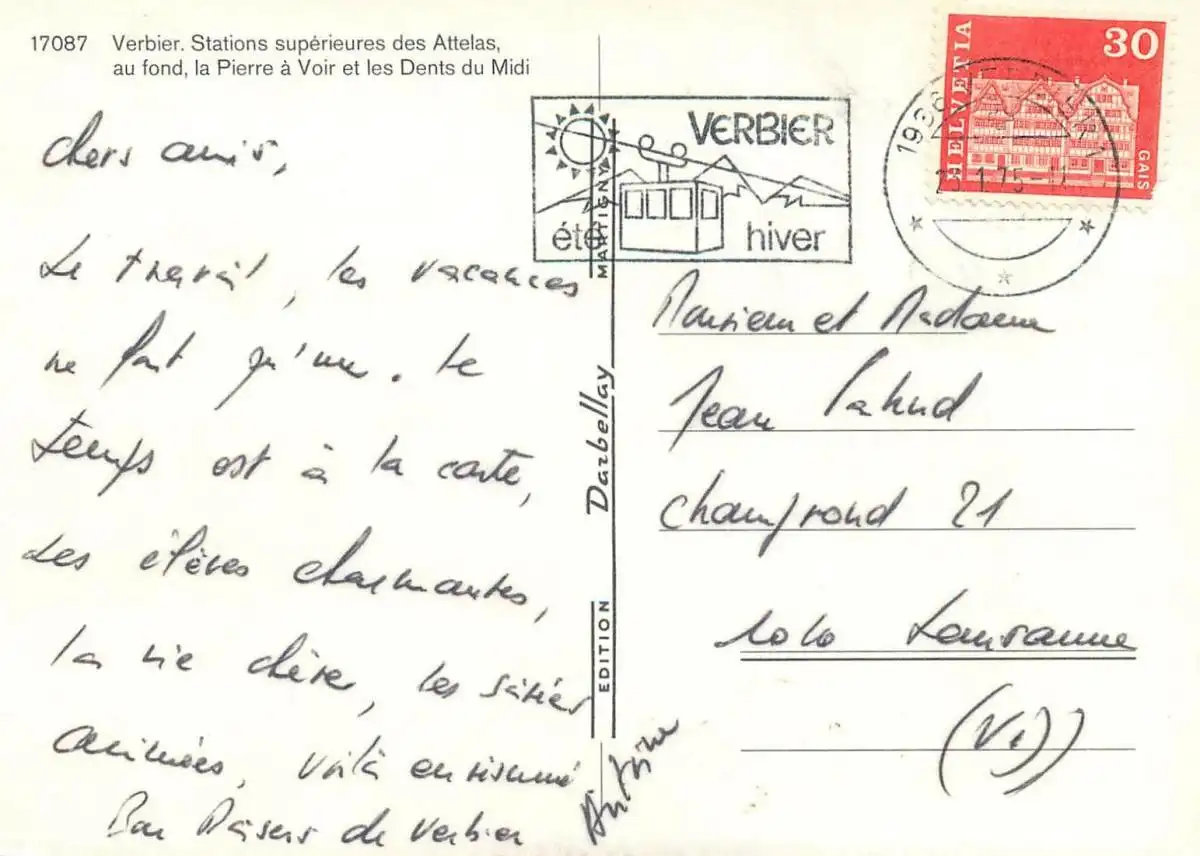 17087 Verbier. Stations supérieures des Attelas,
au fond, la Pierre à Voir et les Dents du Midi
Chers amis,
Le travail, les vacances
ne font qu'un. Le
temps est à la carte,
Les élèves charmantes,
la vie chère, les soirées
animées, voilà en résumé
Bon Baisers de Verbier
Antoine
VERBIER
été hiver
EDITION Darbellay MARTIGNY
HELVETIA 30
GAIS
1936 VERBIER
1.75
Monsieur et Madame
Jean Pahud
Champrond 21
1010 Lausanne
(VD)